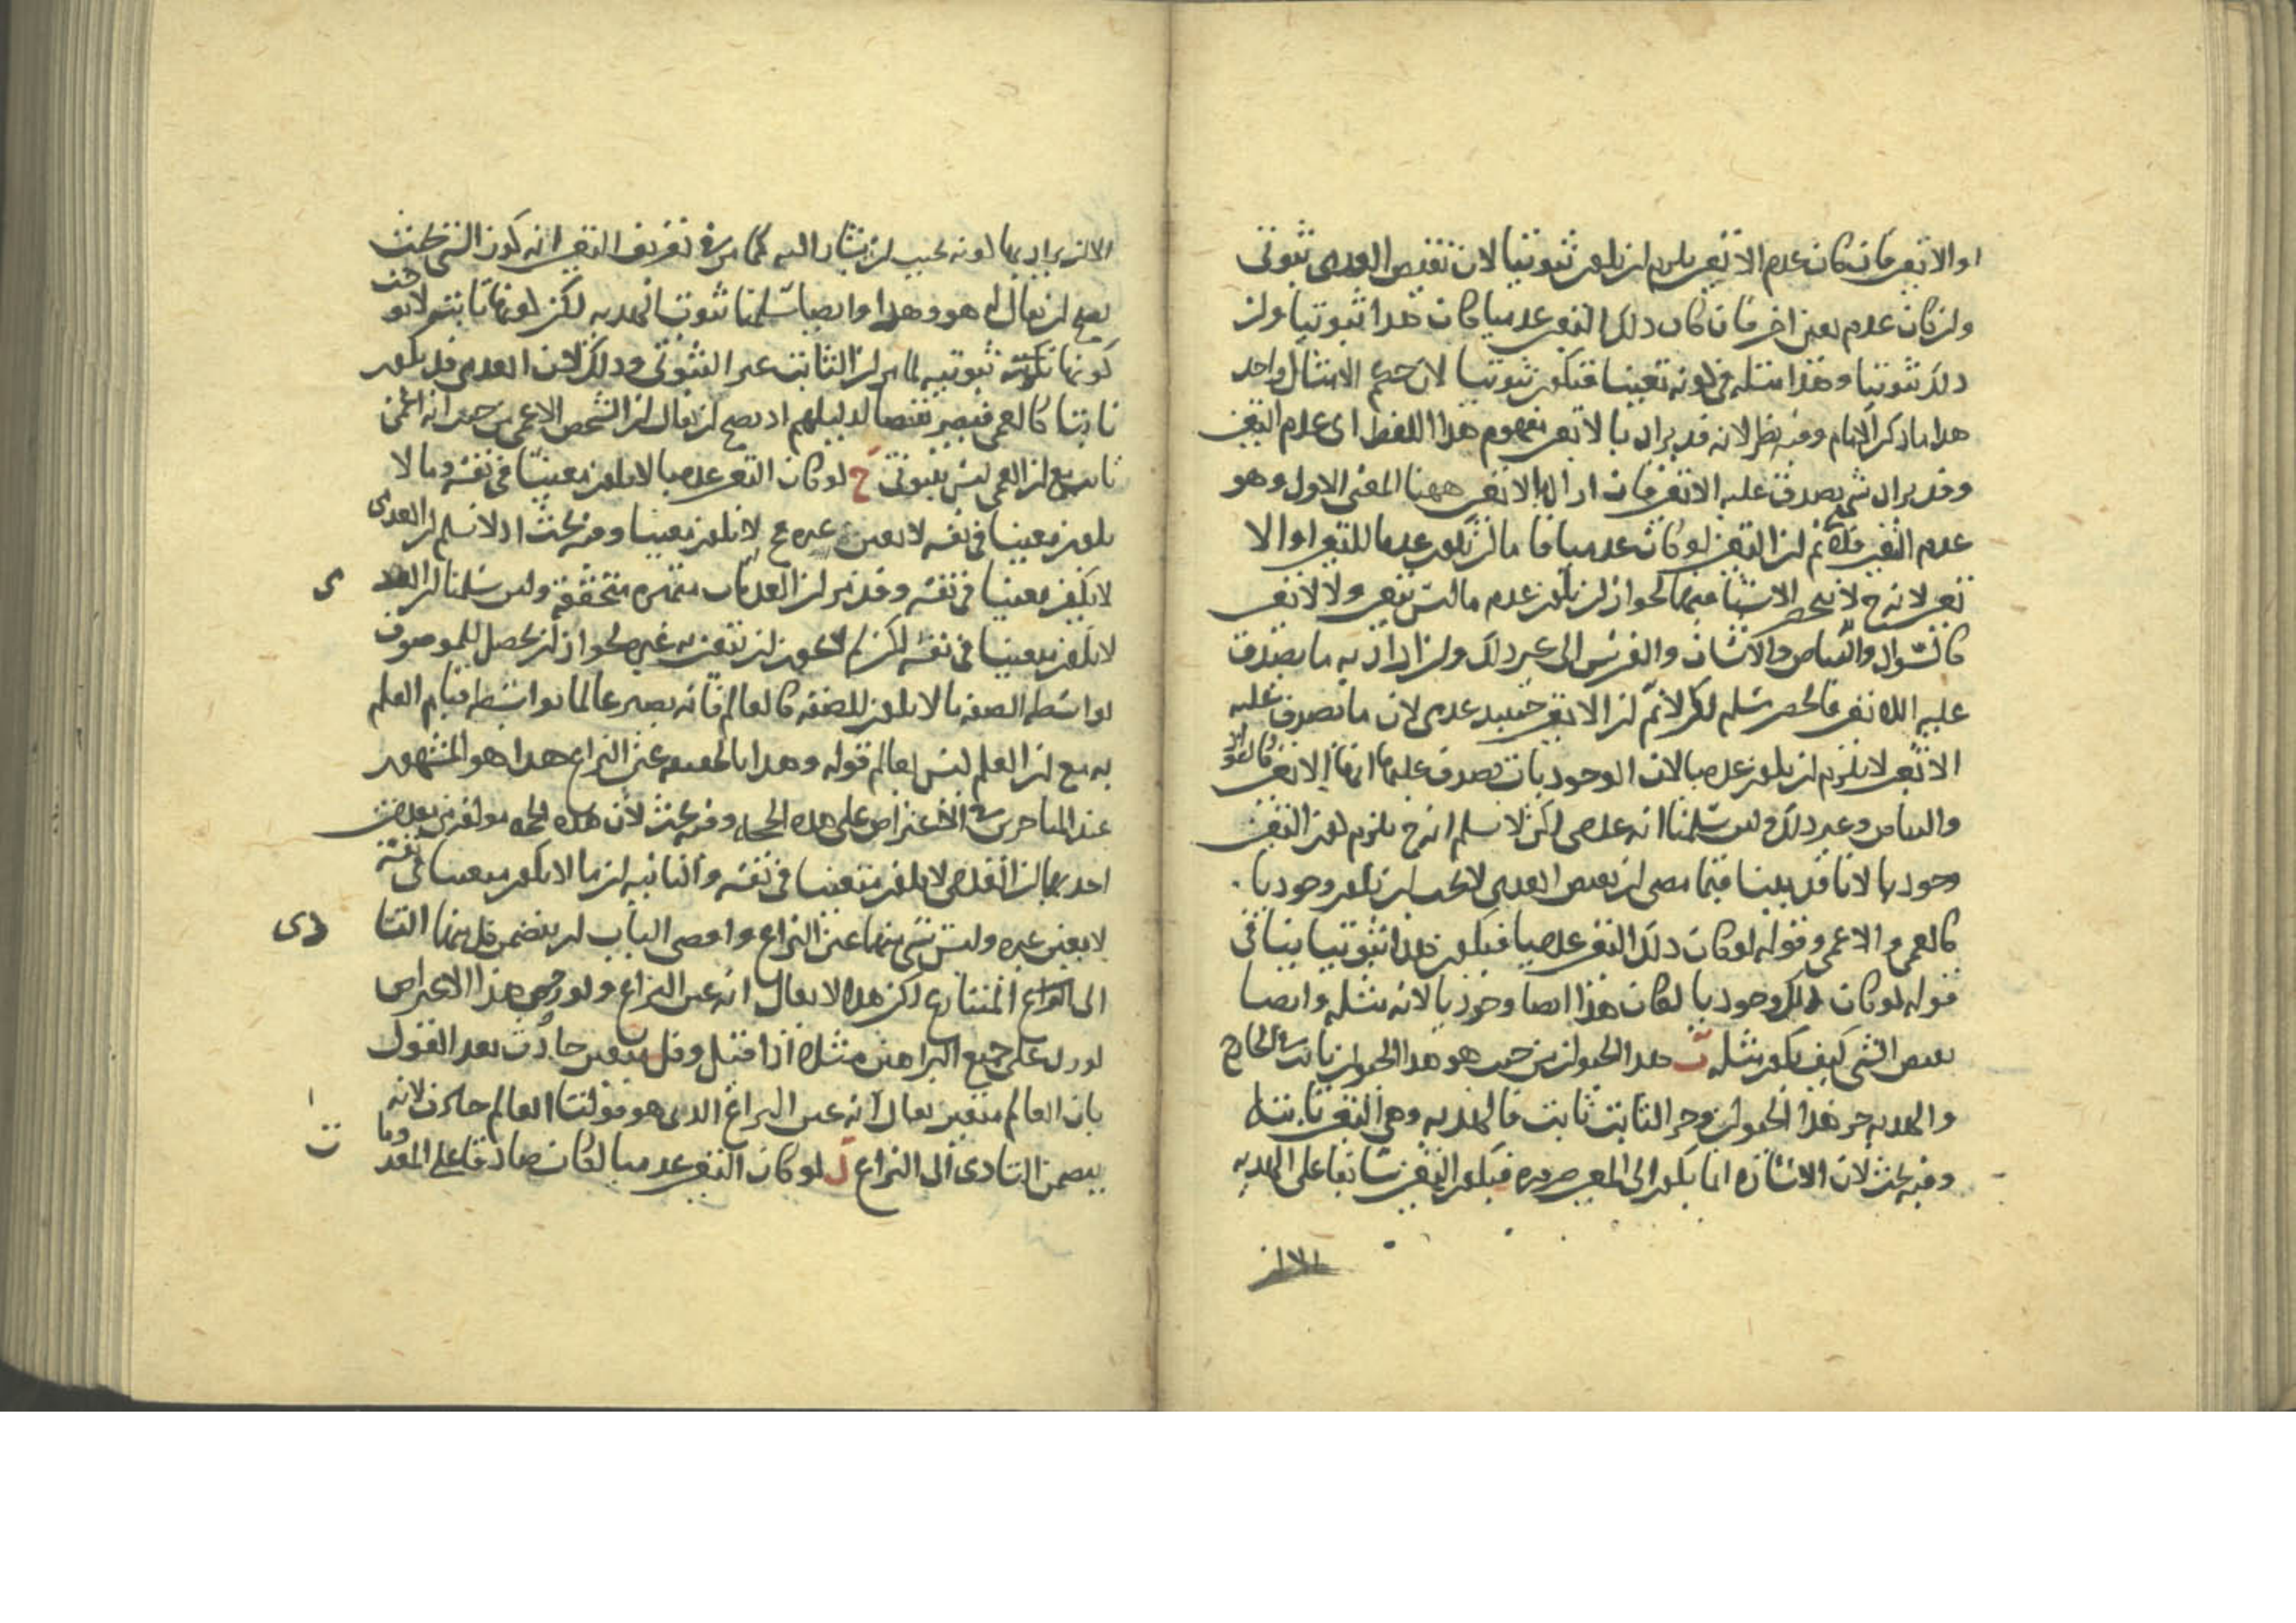 او الاتعين فان كان عدم الاتعين يلزم ان يكون ثبوتيا لان نقيض العدمى ثبوتى
وان كان عدم تعين اخر فان كان ذلك التعين عدميا كان هذا ثبوتيا وان
ذلك ثبوتيا وهذا مثله فى كونه تعينا فيكون ثبوتيا لان حكم الامثال واحد
هذا ما ذكر الامام وفيه نظر لانه قد يراد بالاتعين مفهوم هذا اللفظ اى عدم التعين
وقد يراد شى يصدق عليه الاتعين فان اراد بالاتعين ههنا المعنى الاول وهو
عدم التعين فلانم ان التعين لو كان عدميا فاما ان يكون عدما للتعين او الا
تعين لانه ح لا ينحصر الاشيا فيهما لجواز ان يكون عدم ما ليس بتعين ولا لاتعين
كالسواد والبياض والانسان والفرس الى غير ذلك وان اراد به ما يصدق
عليه اللاتعين فالحصر مسلم لكن لانم ان الاتعين حينئذ عدمى لان ما يصدق عليه
الاتعين لا يلزم ان يكون عدميا لان الوجوديات تصدق عليها انها الاتعين كالسواد
والبياض وغير ذلك ولين سلمنا انه عدمى لكن لا نسلم انه ح يلزم كون التعين
وجوديا لانا قد بينا فيما مضى ان نقيض العدمى لا يجب ان يكون وجوديا
كالعمى والاعمى وقوله لو كان ذلك التعين عدميا فيكون هذا ثبوتيا ينافى
قوله لو كان ذلك وجوديا لكان هذا ايضا وجوديا لانه مثله وايضا
نقيض الشى كيف يكون مثله ب هذا الحيوان من حيث هو هذا الحيوان ثابت فى الخارج
والهذيه جز هذا الحيوان وجز الثابت ثابت فالهذيه وهى التعين ثابته
وفيه بحث لان الاشاره انما يكون الى المعين ضروره فيكون التعين سابقا على الهذيه
الا ان
الا ان يراد بها كونه بحيث ان يشار اليه كما مر فى تعريف التعين انه كون الشى بحيث
يصح ان يقال له هو وهذا وايضا سلمنا ثبوت الهذيه لكن كونها ثابته لا يوجب
كونها ثبوتيه لما مر ان الثابت غير الثبوتى وذلك لان العدمى قد يكون
ثابتا كالعمى فيصير نقضا لدليلهم اذ يصح ان يقال ان الشخص الاعمى من حيث انه اعمى
ثابت مع ان العمى ليس بثبوتى ج لو كان التعين عدميا لا يكون معينا فى نفسه وما لا
يكون معينا فى نفسه لا يعين غيره لا يكون معينا وفيه بحث اذ لا نسلم ان العدمى
لا يكون معينا فى نفسه وقد مر ان العدمات متميزه متحققه ولين سلمنا ان العدمى
لا يكون معينا فى نفسه لكن لم لا يجوز ان يتعين به غيره لجواز ان يحصل للموصوف
بواسطه الصفه ما لا يكون للصفه كالعالم فانه يصير عالما بواسطه قيام العلم
به مع ان العلم ليس بعالم قوله وهذا بالحقيقه عين النزاع هذا هو المشهور
عند المتاخرين فى الاعتراض على هذه الحجه وفيه بحث لان هذه الحجه مولفه من مقدمتين
احديهما ان العدمى لا يكون متعينا فى نفسه والثانيه ان ما لا يكون معينا فى نفسه
لا يعين غيره وليس شى منهما عين النزاع واقصى الباب ان يتضمن كل منهما التا
دى
الى النزاع المتنازع لكن هذا لا يقال انه عين النزاع ولو صح هذا الاعتراض
لورد على جميع البراهين مثلا اذا قيل وكل متغير حادث بعد القول
بان العالم متغير يقال انه عين النزاع الذى هو قولنا العالم حادث لانه
يتضمن التادى الى النزاع د لو كان التعين عدميا لكان صادقا على المعدوم